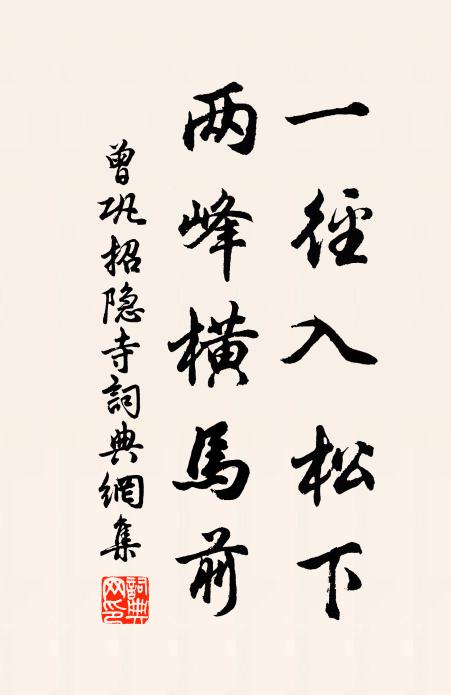 一徑入松下
两峰横馬前
曾巩招隐寺詞典網集
詞典网印